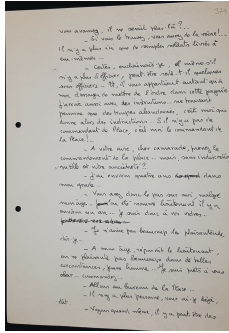 vous avancez, il ne serait plus là ?...
– Si vous le trouvez, vous aurez de la veine !...
Il n'y a plus ici que de simples soldats livrés à
eux-mêmes...
– Certes, enchaînai-je, et même s'il
n'y a plus d'officier, peut-être reste-t-il quelques
sous-officiers... Et, il vous appartient autant qu'à
moi d'essayer de mettre de l'ordre dans cette pagaïe
j'arrive ici avec des instructions... ne trouvant
personne que des troupes abandonnées, c'est moi qui
donne alors des instructions. S'il n'y a pas de
commandant de Place, c'est moi le commandant de
la Place !...
– A votre aise, cher camarade, prenez le
commandement de la place... mais, sans indiscrétion
quelle est votre ancienneté ?
– J'ai environ quatre ans dans
mon grade.
– Vous avez donc le pas sur moi, malgré
nommé lieutenant il y a
environ un an... Je suis donc à vos ordres.
– Je n'aime pas beaucoup les plaisanteries,
dis-je.
– A mon âge, répondit le lieutenant,
on ne plaisante pas beaucoup dans de telles
circonstances, jeune homme... Je suis prêt à vous
obéir... commandez.
– Allons au bureau de la Place...
– Il n'y a plus personne, vous ai-je déjà
dit.
– Voyons quand même, il y a peut-être des